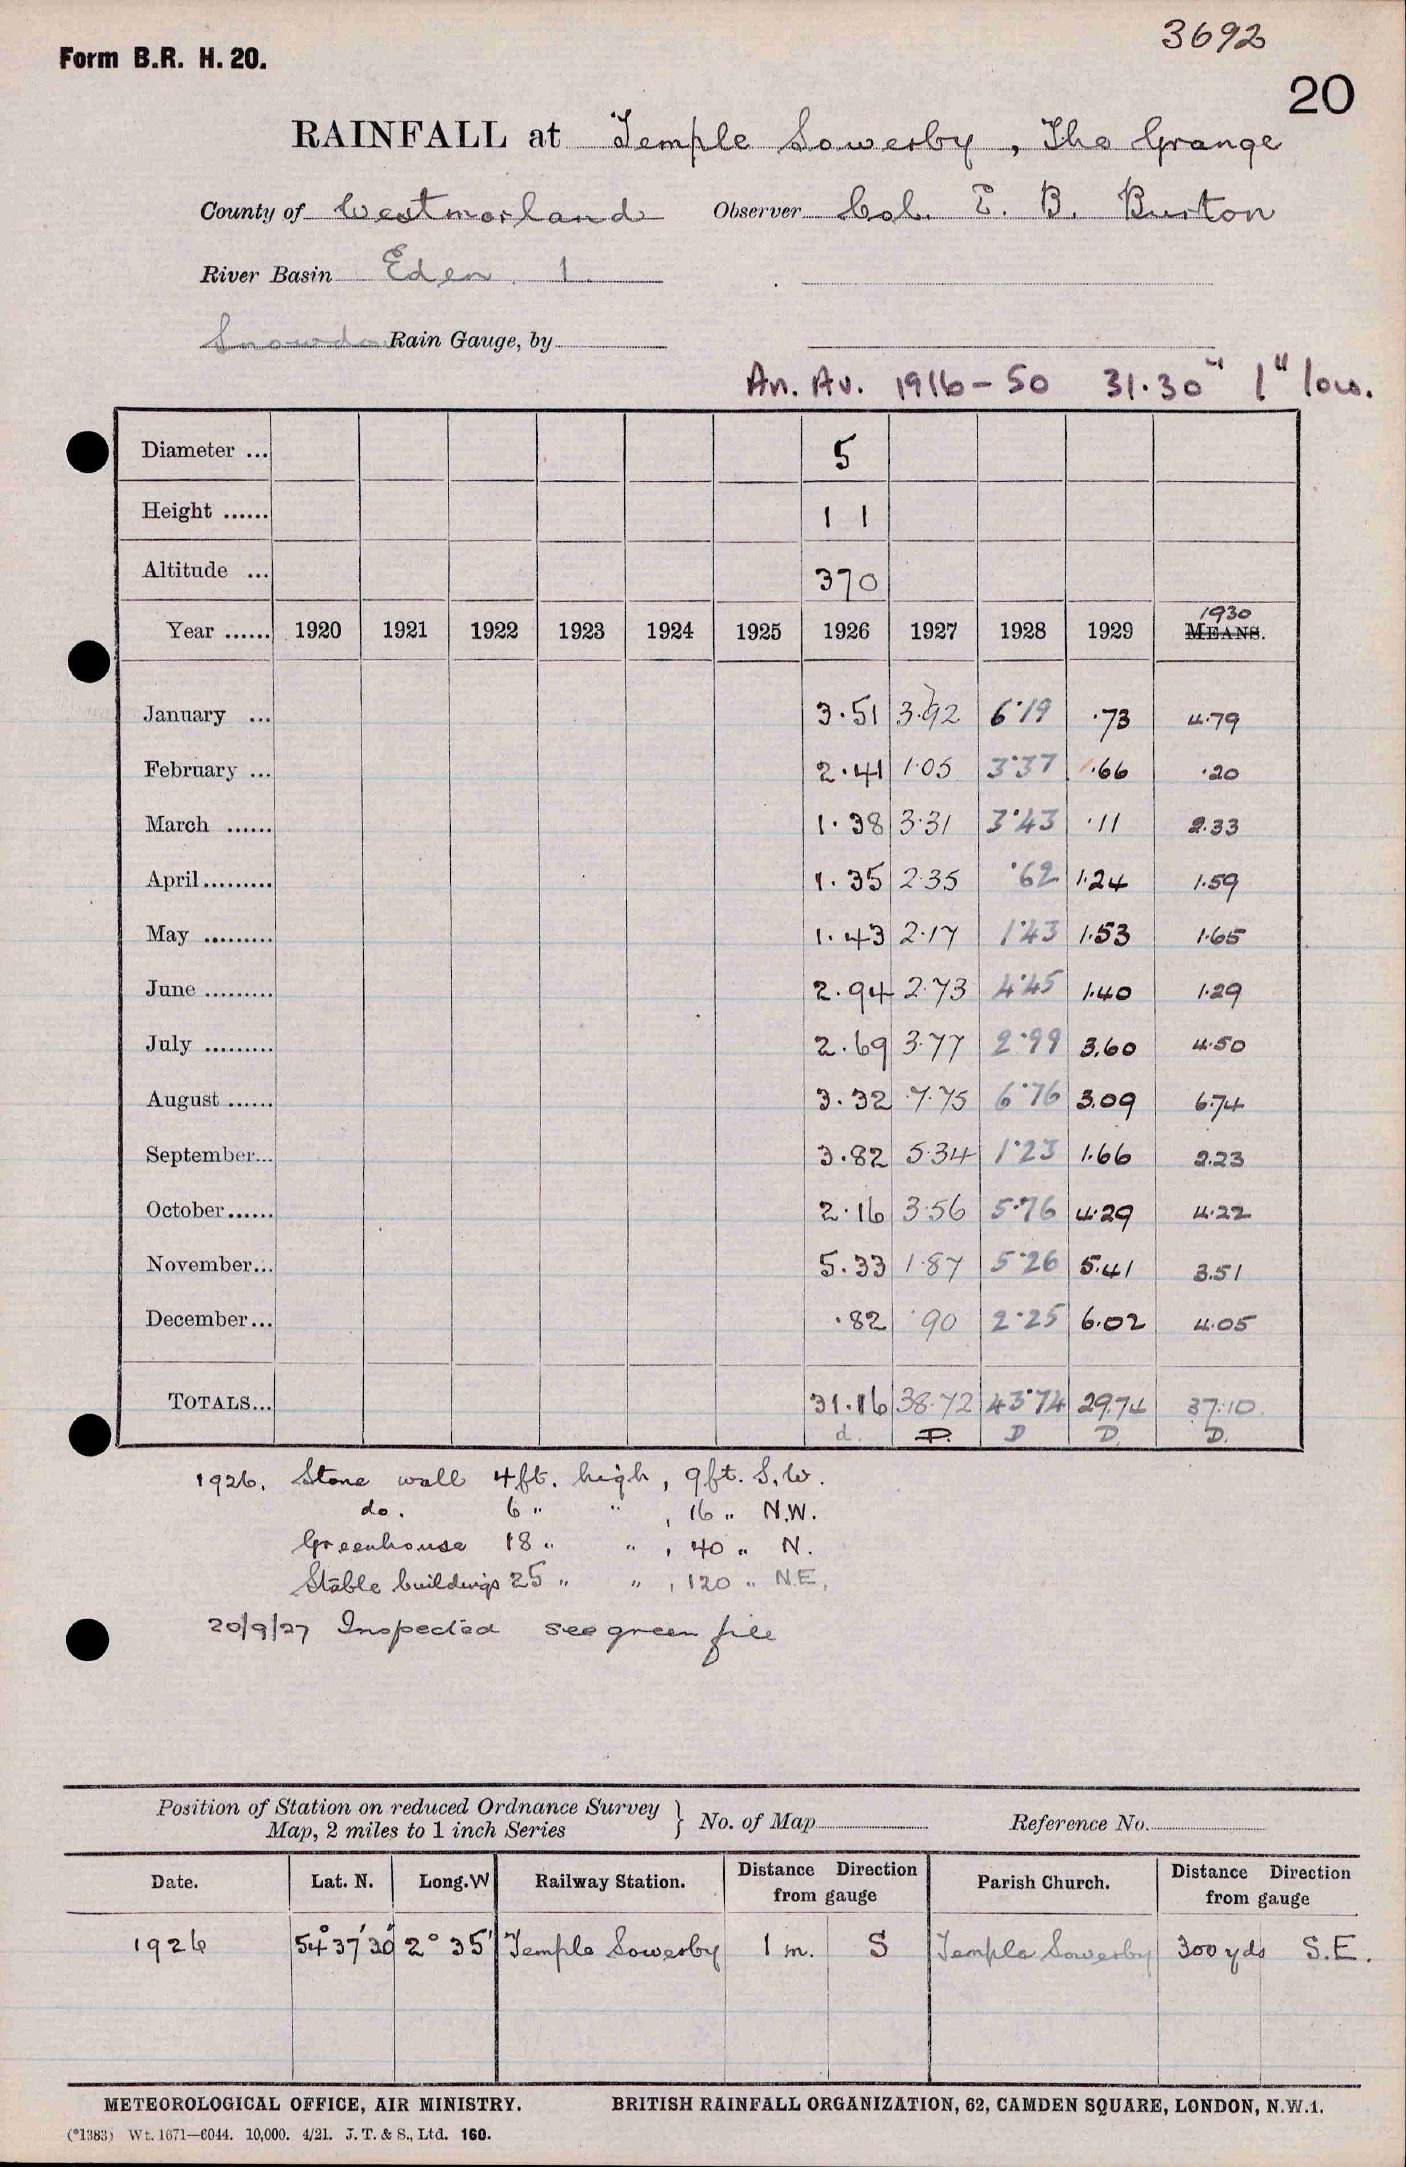 3692
Form B.R. H. 20.
20
RAINFALL at Temple Sowerby, The Grange
County of Westmorland Observer Col. E. B. Burton
River Basin Eden 1
Snowdon Rain Gauge, by
An. Av. 1916-50 31.30" 1" low.
Diameter ... 5
Height ...... 11
Altitude ... 370
1930
Year ...... 1920 1921 1922 1923 1924 1925 1926 1927 1928 1929 MEANS.
January ... 3.51 3.92 6.19 .73 4.79
February ... 2.41 1.05 3.37 .66 .20
March ...... 1.38 3.31 3.43 .11 2.33
April......... 1.35 2.35 .62 1.24 1.59
May ......... 1.43 2.17 1.43 1.53 1.65
June ......... 2.94 2.73 4.45 1.40 1.29
July ......... 2.69 3.77 2.99 3.60 4.50
August ...... 3.32 7.75 6.76 3.09 6.74
September... 3.82 5.34 1.23 1.66 2.23
October...... 2.16 3.56 5.76 4.29 4.22
November... 5.33 1.87 5.26 5.41 3.51
December... .82 .90 2.25 6.02 4.05
TOTALS... 31.16 38.72 43.74 29.74 37.10
d. D. D D. D.
1926. Stone wall 4ft. high, 9ft. S.W.
do. 6 " " , 16 " N.W.
Greenhouse 18 " " , 40 " N.
Stable buildings 25 " " , 120 " N.E.
20/9/27 Inspected see green file
Position of Station on reduced Ordnance Survey
Map, 2 miles to 1 inch Series } No. of Map Reference No.
Date. Lat. N. Long. W Railway Station. Distance Direction from gauge Parish Church. Distance Direction from gauge
1926 54° 37' 30" 2° 35' Temple Sowerby 1 m. S Temple Sowerby 300 yds S.E.
METEOROLOGICAL OFFICE, AIR MINISTRY. BRITISH RAINFALL ORGANIZATION, 62, CAMDEN SQUARE, LONDON, N.W.1.
(*1383) Wt. 1671—6044. 10,000. 4/21. J. T. & S., Ltd. 160.